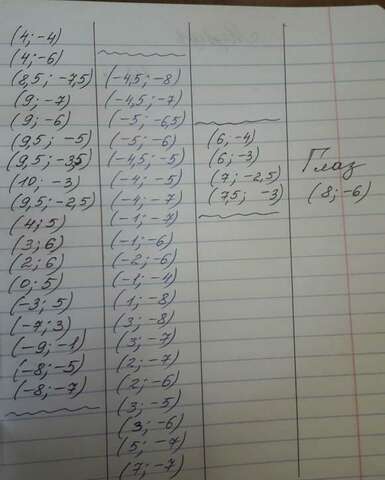 (4; -4)
(4; -6)
(8,5; -7,5)
(9; -7)
(9; -6)
(9,5; -5)
(9,5; -3,5)
(10; -3)
(9,5; -2,5)
(4; 5)
(3; 6)
(2; 6)
(0; 5)
(-3; 5)
(-7; 3)
(-9; -1)
(-8; -5)
(-8; -7)
(-4,5; -8)
(-4,5; -7)
(-5; -6,5)
(-5; -6)
(-4,5; -5)
(-4; -5)
(-4; -7)
(-1; -7)
(-1; -6)
(-2; -6)
(-1; -4)
(1; -8)
(3; -8)
(3; -7)
(2; -7)
(2; -6)
(3; -5)
(3; -6)
(5; -7)
(7; -7)
(6, -4)
(6; -3)
(7; -2,5)
(7,5; -3)
Глаз
(8; -6)